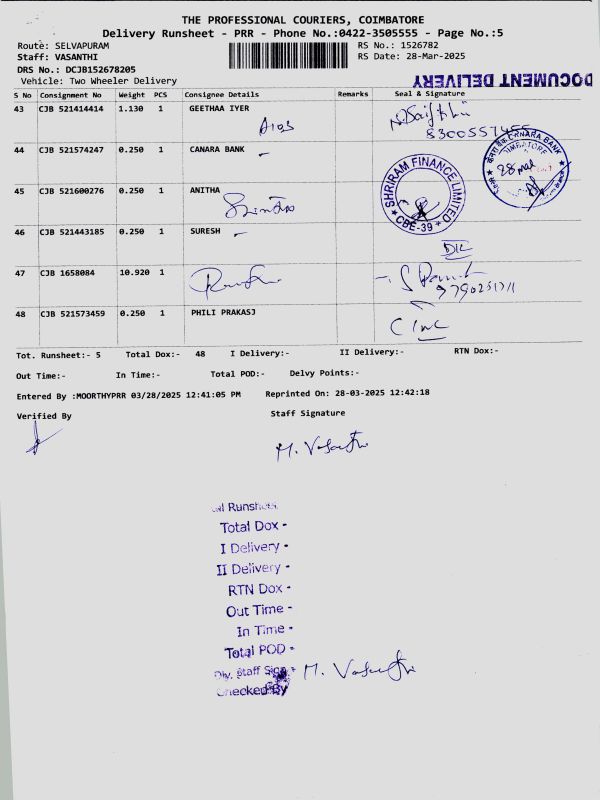 THE PROFESSIONAL COURIERS, COIMBATORE
Delivery Runsheet - PRR - Phone No.:0422-3505555 - Page No.:5
Route: SELVAPURAM
Staff: VASANTHI
DRS No.: DCJB152678205
Vehicle: Two Wheeler Delivery
RS No.: 1526782
RS Date: 28-Mar-2025
DOCUMENT DELIVERY
S No Consignment No Weight PCS Consignee Details Remarks Seal & Signature
43 CJB 521414414 1.130 1 GEETHAA IYER
44 CJB 521574247 0.250 1 CANARA BANK -
CANARA BANK
COIMBATORE
28 Mar
45 CJB 521600276 0.250 1 ANITHA
SHRIRAM FINANCE LIMITED
* CBE-39 *
46 CJB 521443185 0.250 1 SURESH -
47 CJB 1658084 10.920 1
48 CJB 521573459 0.250 1 PHILI PRAKASJ
Tot. Runsheet:- 5 Total Dox:- 48 I Delivery:- II Delivery:- RTN Dox:-
Out Time:- In Time:- Total POD:- Delvy Points:-
Entered By :MOORTHYPRR 03/28/2025 12:41:05 PM Reprinted On: 28-03-2025 12:42:18
Verified By Staff Signature
M. Vasanthi
Runsheet
Total Dox -
I Delivery -
II Delivery -
RTN Dox -
Out Time -
In Time -
Total POD -
Dlv. Staff Sign - M. Vasanthi
Checked By